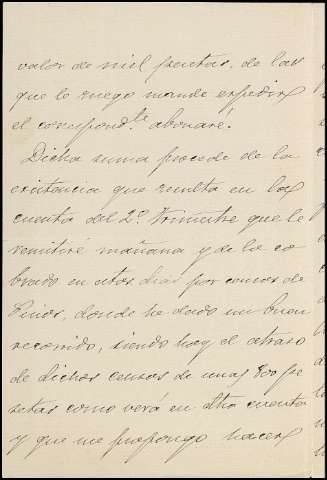 valor de mil pesetas, de las
que le ruego mande expedir
el correspond.te abonaré.
Dicha suma procede de la
existencia que resulta en las
cuenta del 2º trimestre que le
remitiré mañana y de lo co-
brado en estos dias por censos de
Pinos, donde he dado un buen
recorrido, siendo hoy el atraso
de dichos censos de unas 800 pe
setas como verá en dha cuenta
y que me propongo hacer